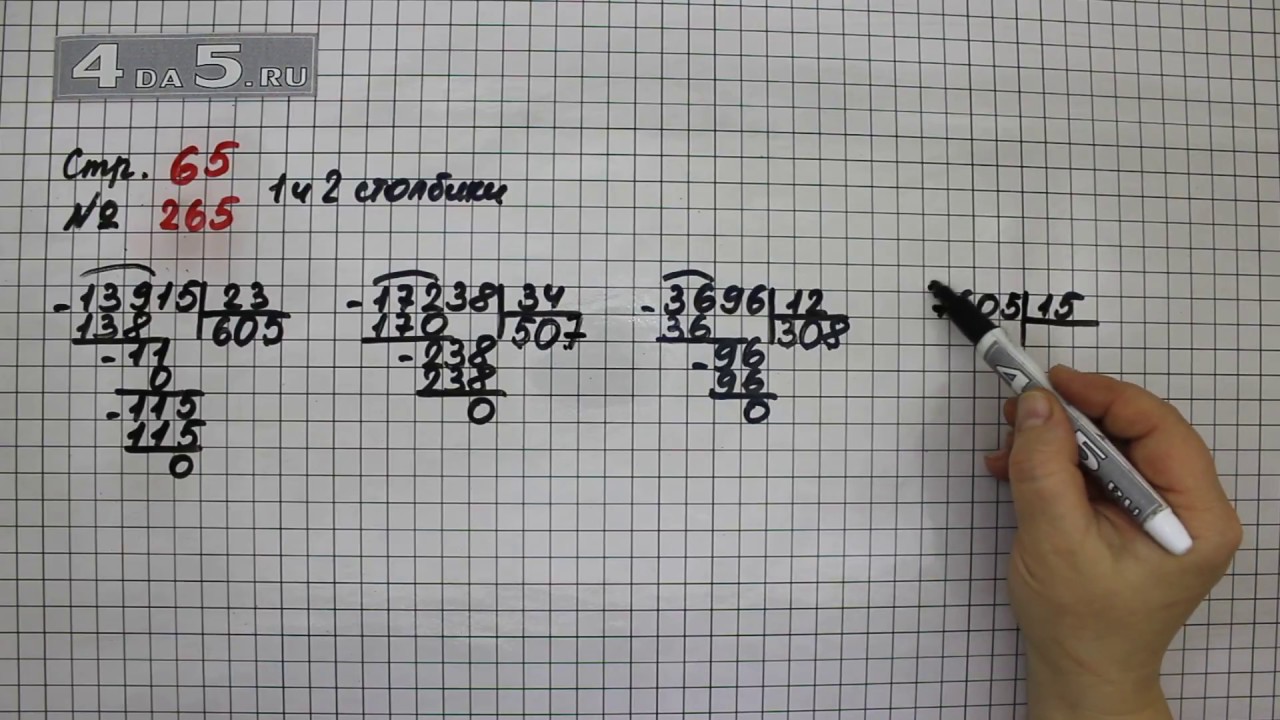 4 DA 5.RU
Стр. 65
№ 265
1 и 2 столбики
-13915 23
138 605
-11
0
-115
115
0
-17238 34
170 507
-238
238
0
-3696 12
36 308
-96
96
0
15